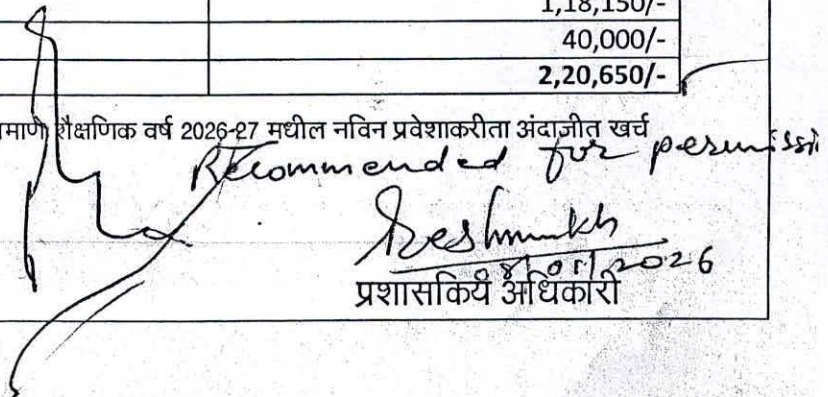 1,18,150/-
40,000/-
2,20,650/-
शैक्षणिक वर्ष 2026-27 मधील नविन प्रवेशाकरीता अंदाजीत खर्च
Recommended for permissi
8/01/2026
प्रशासकिय अधिकारी